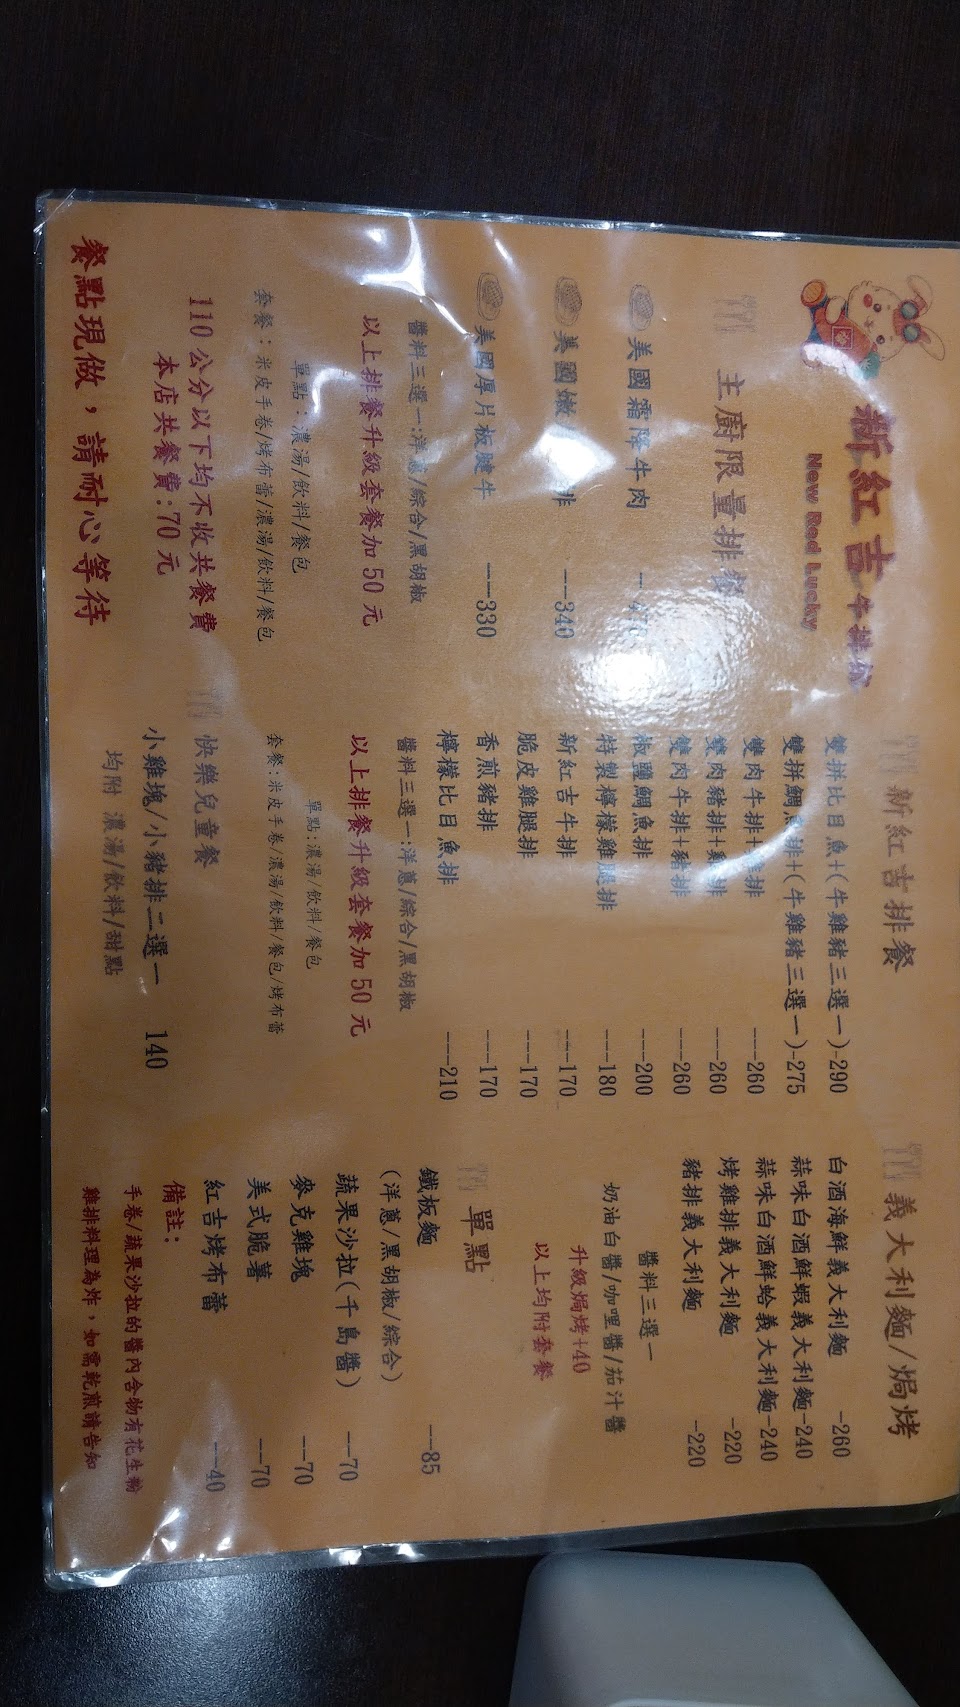 新紅吉牛排館
New Red Lucky
主廚限量排餐
美國霜降牛肉
美國嫩 排 --340
美國厚片板腱牛 --330
醬料三選一:洋蔥/綜合/黑胡椒
以上排餐升級套餐加50元
單點:濃湯/飲料/餐包
套餐:米皮手卷/烤布蕾/濃湯/飲料/餐包
110公分以下均不收共餐費
本店共餐費:70元
餐點現做,請耐心等待
新紅吉排餐
雙拼比目魚+(牛雞豬三選一)-290
雙拼鯛魚排+(牛雞豬三選一)-275
雙肉牛排+雞排 ---260
雙肉豬排+雞排 ---260
雙肉牛排+豬排 ---260
椒鹽鯛魚排 ---200
特製檸檬雞腿排 ---180
新紅吉牛排 ---170
脆皮雞腿排 ---170
香煎豬排 ---170
檸檬比目魚排 ---210
醬料三選一:洋蔥/綜合/黑胡椒
以上排餐升級套餐加50元
單點:濃湯/飲料/餐包
套餐:米皮手卷/濃湯/飲料/餐包/烤布蕾
快樂兒童餐
小雞塊/小豬排二選一 140
均附 濃湯/飲料/甜點
義大利麵/焗烤
白酒海鮮義大利麵 -260
蒜味白酒鮮蝦義大利麵-240
蒜味白酒鮮蛤義大利麵-240
烤雞排義大利麵 -220
豬排義大利麵 -220
醬料三選一
奶油白醬/咖哩醬/茄汁醬
升級焗烤+40
以上均附套餐
單點
鐵板麵 --85
(洋蔥/黑胡椒/綜合)
蔬果沙拉(千島醬) --70
麥克雞塊 --70
美式脆薯 --70
紅吉烤布蕾 ---40
備註:
手卷/蔬果沙拉的醬內含物有花生粉
雞排料理為炸,如需乾煎請告知